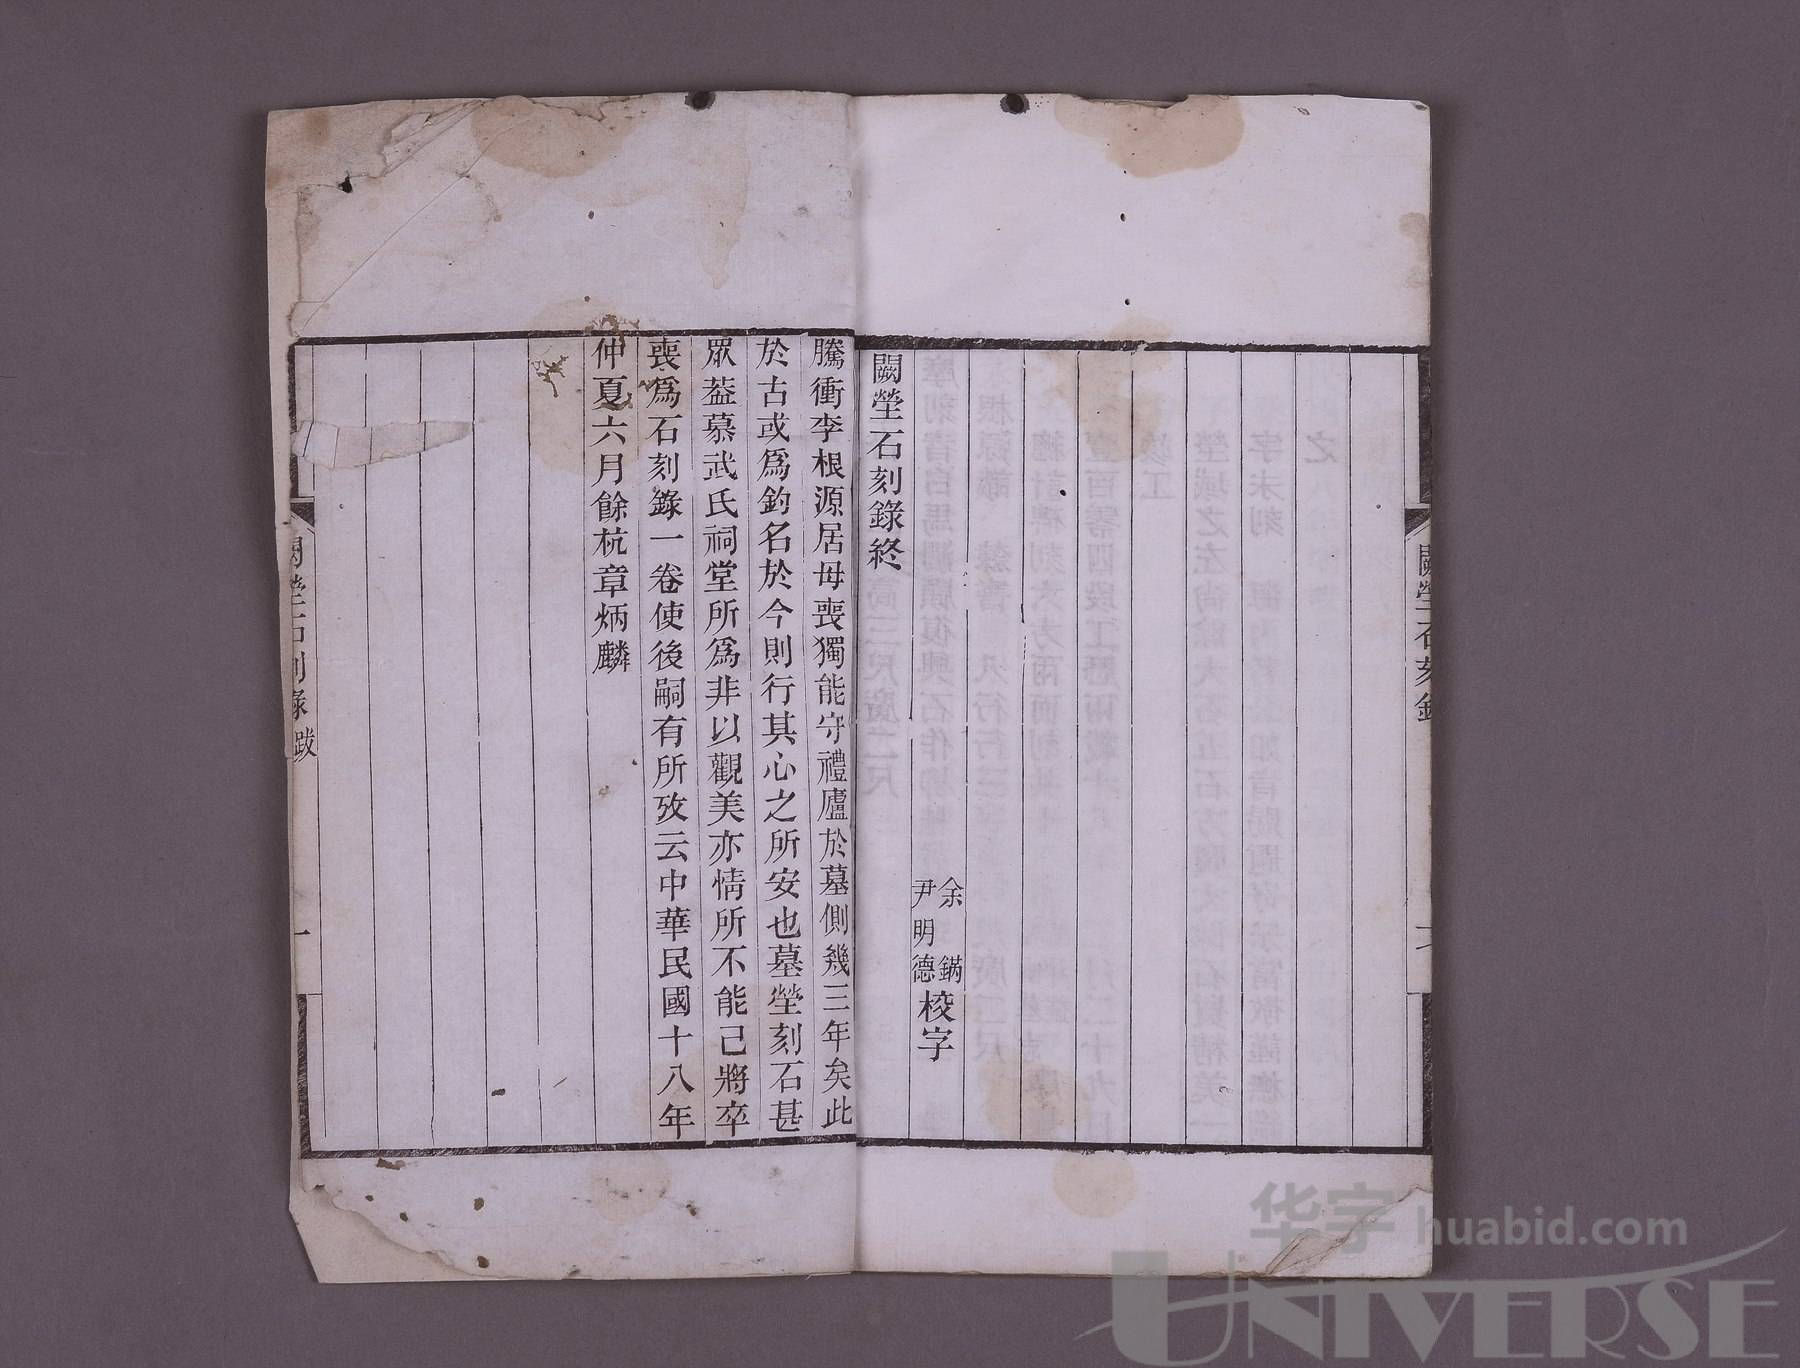 闕塋石刻錄
闕塋石刻錄終
余 鏋
尹明德
校字
騰衝李根源居母喪獨能守禮廬於墓側幾三年矣此
於古或爲釣名於今則行其心之所安也墓塋刻石甚
眾葢慕武氏祠堂所爲非以觀美亦情所不能已將卒
喪爲石刻錄一卷使後嗣有所攷云中華民國十八年
仲夏六月餘杭章炳麟
闕塋石刻錄 跋
一
华宇 huabid.com
UNIVERSE